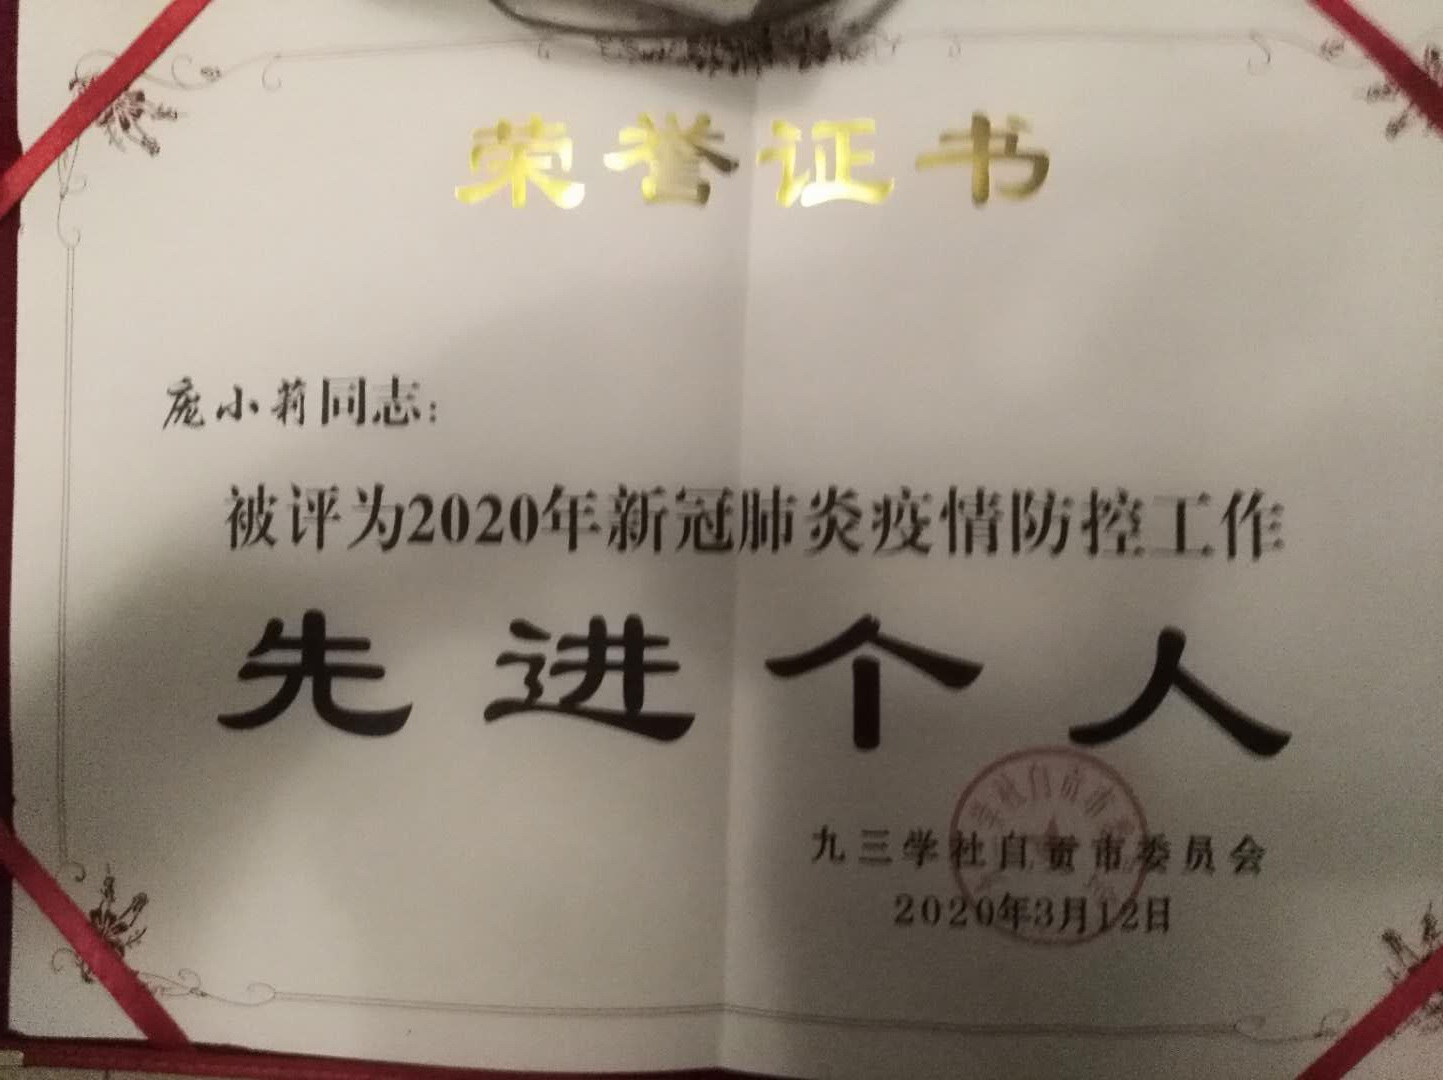 荣誉证书
庞小莉同志：
被评为2020年新冠肺炎疫情防控工作
先进个人
九三学社自贡市委员会
2020年3月12日